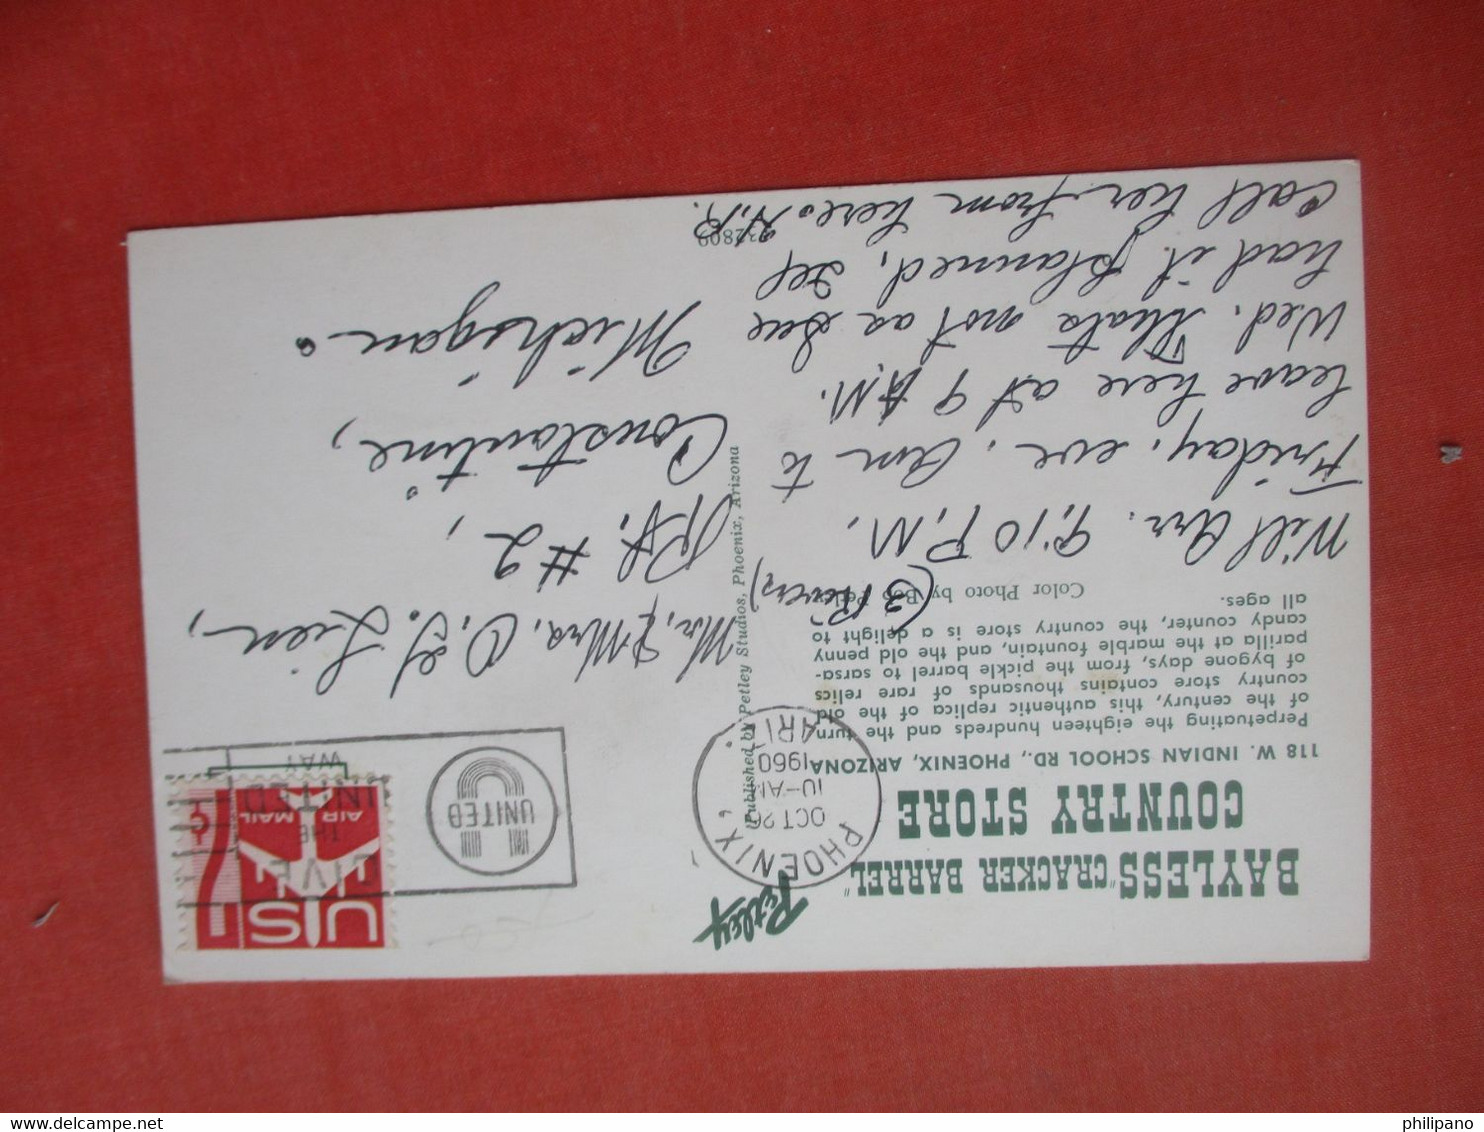 BAYLESS "CRACKER BARREL"
COUNTRY STORE
118 W. INDIAN SCHOOL RD., PHOENIX, ARIZONA
Perpetuating the eighteen hundreds and the turn
of the century, this authentic replica of the old
country store contains thousands of rare relics
of bygone days, from the pickle barrel to sarsa-
parilla at the marble fountain, and the old penny
candy counter, the country store is a delight to
all ages.
Color Photo by Bob Petley
(3 Rivers)
Will Arr. 9:10 P.M.
Friday, eve. Am to
leave here at 9 A.M.
Wed. Thats not as Sue
had it planned, Tel
call her from here. N.R.
Petley
Published by Petley Studios, Phoenix, Arizona
PHOENIX,
OCT 26
10-AM
1960
ARIZ.
UNITED
LIVE
THE
UNITED
WAY
US
AIR MAIL
7¢
Mr, & Mrs. O. G. Lien,
Rt. #2,
Constantine,
Michigan.
32809
www.delcampe.net
philipano